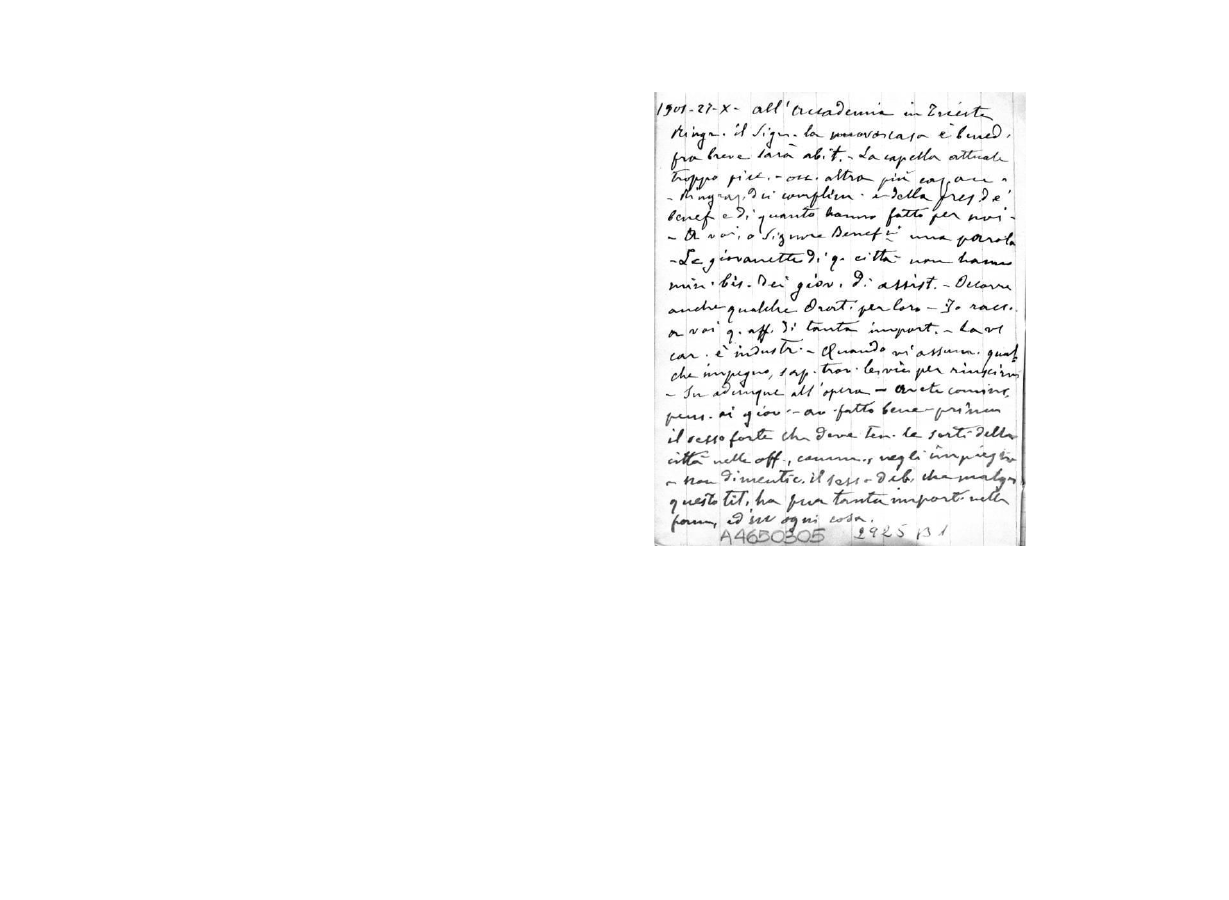 1901-27-X- all'Accademia in Trieste
Ringr. il Sign. la nuova casa è bened.
fra breve sarà abit. - La capella attuale
troppo picc. - occ. altra più
- Ringraz. dei complim. e della pres. de'
benef e di quanto hanno fatto per noi -
- A voi, o Signore Benef una parola
- Le giovanette di q. città non hanno
min. bis. dei giov. di assist. - Occorre
anche qualche Orat. per loro - Io racc.
a voi q. aff. di tanta import. - La vs
car. è industr. - Quando vi assum. qual
che impegno, sap. trov. le vie per riuscirvi
- Su adunque all'opera - Avete cominc.
pens. ai giov. - av. fatto bene - prima
il sesso forte che deve ten. le sorti della
città nelle off., comm., negli
- non dimentic. il sess. deb. che malg.
questo tit. ha pur tanta import. nella
fam. ed in ogni cosa.
A4650305 2925 B1